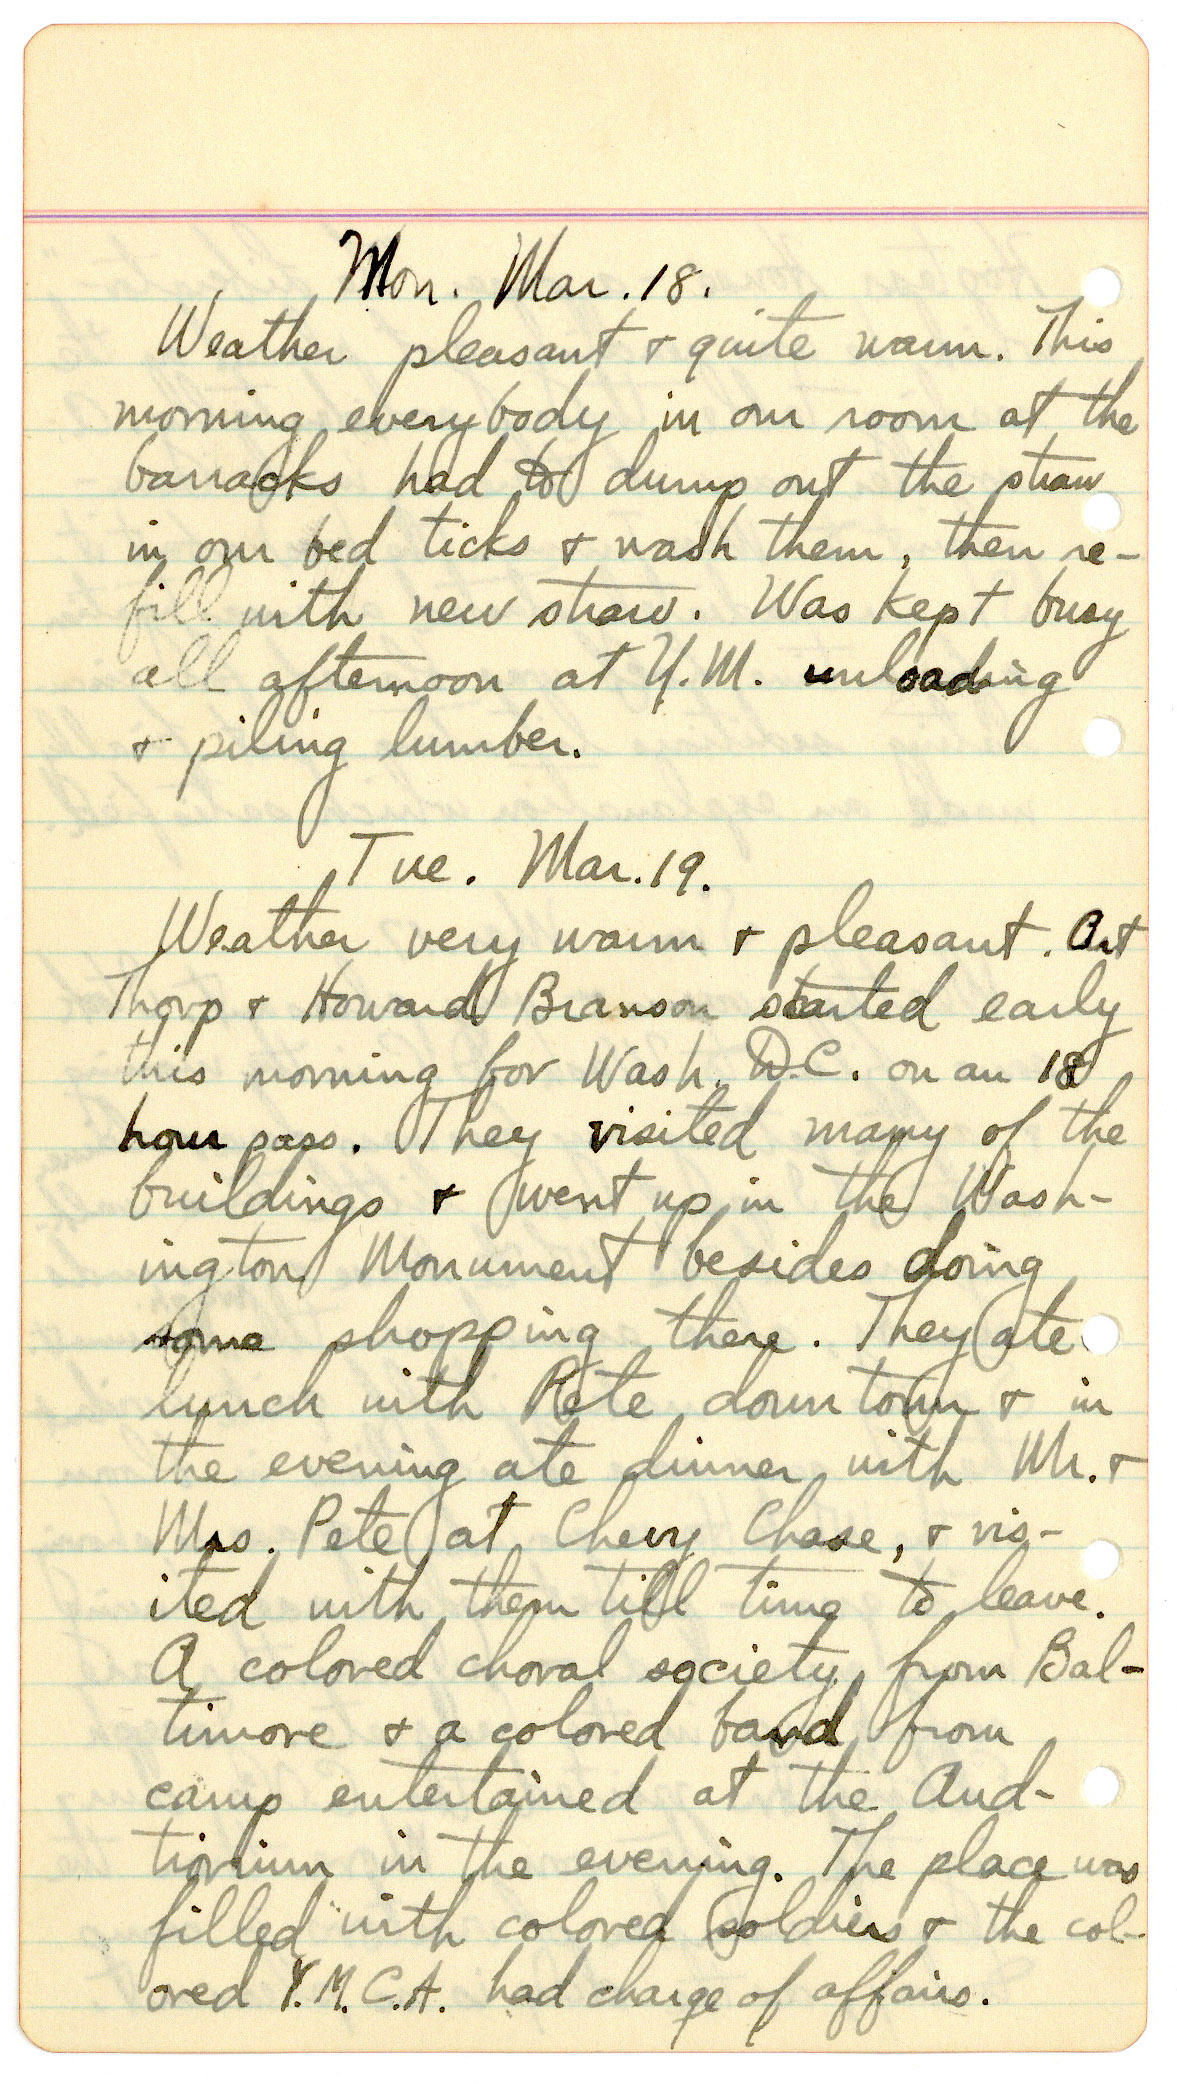 Mon. Mar. 18.
Weather pleasant & quite warm. This
morning everybody in our room at the
barracks had to dump out the straw
in our bed ticks & wash them, then re-
fill with new straw. Was kept busy
all afternoon at Y.M. unloading
& piling lumber.
Tue. Mar. 19.
Weather very warm & pleasant. Art
Thorp & Howard Branson started early
this morning for Wash. D.C. on an 18
hour pass. They visited many of the
buildings & went up in the Wash-
ington Monument besides doing
some shopping there. They ate
lunch with Pete downtown & in
the evening ate dinner with Mr. &
Mrs. Pete at Chevy Chase, & vis-
ited with them till time to leave.
A colored choral society from Bal-
timore & a colored band from
camp entertained at the Aud-
tiorium in the evening. The place was
filled with colored soldiers & the col-
ored Y.M.C.A. had charge of affairs.